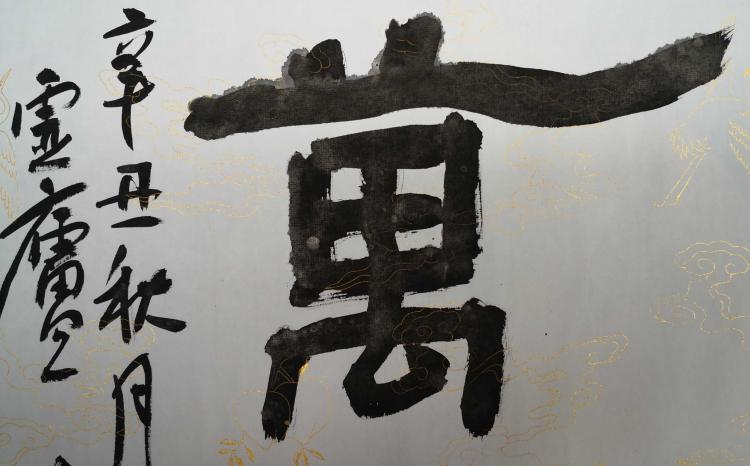 萬
辛丑秋月
靈廬